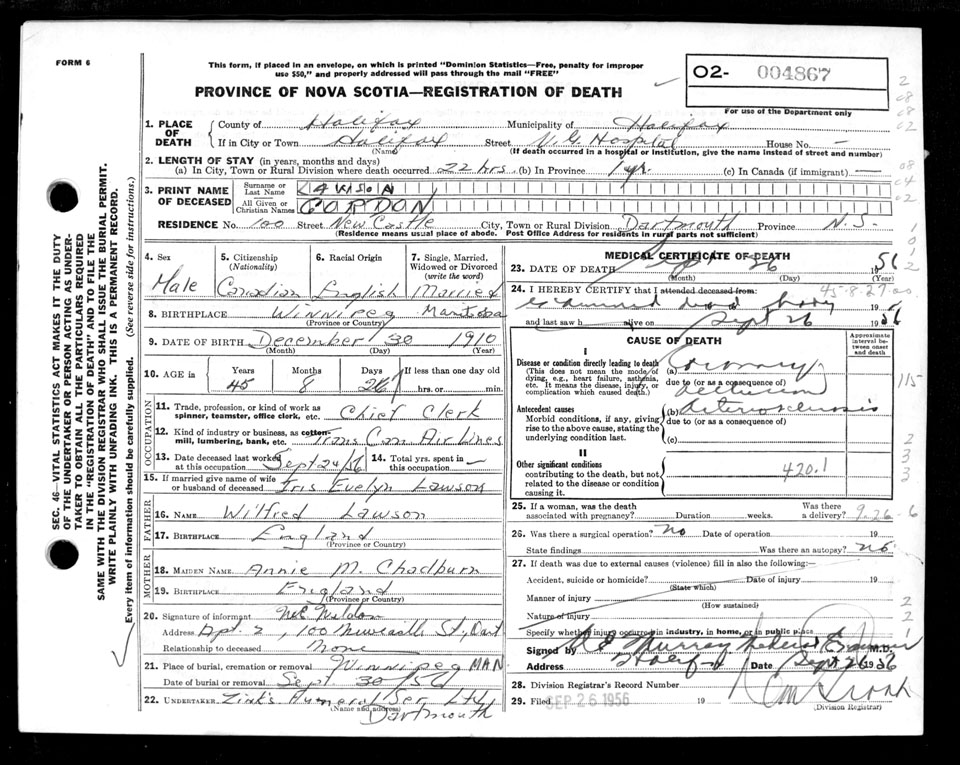 FORM 6
This form, if placed in an envelope, on which is printed "Dominion Statistics—Free, penalty for improper
use $50," and properly addressed will pass through the mail "FREE"
PROVINCE OF NOVA SCOTIA—REGISTRATION OF DEATH
O2- 004867
For use of the Department only
SEC. 46—VITAL STATISTICS ACT MAKES IT THE DUTY
OF THE UNDERTAKER OR PERSON ACTING AS UNDER-
TAKER TO OBTAIN ALL THE PARTICULARS REQUIRED
IN THE "REGISTRATION OF DEATH" AND TO FILE THE
SAME WITH THE DIVISION REGISTRAR WHO SHALL ISSUE THE BURIAL PERMIT.
WRITE PLAINLY WITH UNFADING INK. THIS IS A PERMANENT RECORD.
Every item of information should be carefully supplied. (See reverse side for instructions.)
1. PLACE OF DEATH
County of Halifax Municipality of Halifax
If in City or Town Halifax Street V.G. Hospital House No. —
(Name) (If death occurred in a hospital or institution, give the name instead of street and number)
2. LENGTH OF STAY (in years, months and days)
(a) In City, Town or Rural Division where death occurred 22 hrs. (b) In Province 1 yr. (c) In Canada (if immigrant) —
3. PRINT NAME OF DECEASED
Surname or Last Name LAWSON
All Given or Christian Names GORDON
RESIDENCE No. 100 Street New Castle City, Town or Rural Division Dartmouth Province N.S.
(Residence means usual place of abode. Post Office Address for residents in rural parts not sufficient)
4. Sex Male
5. Citizenship (Nationality) Canadian
6. Racial Origin English
7. Single, Married, Widowed or Divorced (write the word) Married
8. BIRTHPLACE Winnipeg Manitoba
(Province or Country)
9. DATE OF BIRTH December 30 1910
(Month) (Day) (Year)
10. AGE in Years 45 Months 8 Days 26 If less than one day old
hrs. or min.
OCCUPATION
11. Trade, profession, or kind of work as
spinner, teamster, office clerk, etc. Chief Clerk
12. Kind of industry or business, as cotton-
mill, lumbering, bank, etc. Trans Can Air Lines
13. Date deceased last worked
at this occupation Sept 24/56
14. Total yrs. spent in
this occupation —
15. If married give name of wife
or husband of deceased Iris Evelyn Lawson
FATHER
16. NAME Wilfred Lawson
17. BIRTHPLACE England
(Province or Country)
MOTHER
18. MAIDEN NAME Annie M. Chadburn
19. BIRTHPLACE England
(Province or Country)
20. Signature of informant
Address Apt. 2, 100 Newcastle St, Dart
Relationship to deceased None
21. Place of burial, cremation or removal Winnipeg MAN
Date of burial or removal Sept 30/56
22. UNDERTAKER Zink's Funeral Ser. Ltd
(Name and address)
Dartmouth
MEDICAL CERTIFICATE OF DEATH
23. DATE OF DEATH Sept 26 1956
(Month) (Day) (Year)
24. I HEREBY CERTIFY that I attended deceased from: 45-8-27
examined dead body 19
and last saw h alive on Sept 26 1956
CAUSE OF DEATH
Approximate interval between onset and death
I
Disease or condition directly leading to death
(This does not mean the mode of
dying, e.g., heart failure, asthenia,
etc. It means the disease, injury, or
complication which caused death.)
(a) Coronary
due to (or as a consequence of)
occlusion
Antecedent causes
Morbid conditions, if any, giving
rise to the above cause, stating the
underlying condition last.
(b) Arteriosclerosis
due to (or as a consequence of)
(c)
II
Other significant conditions
contributing to the death, but not
related to the disease or condition
causing it.
420.1
25. If a woman, was the death
associated with pregnancy? Duration weeks. Was there a delivery? 9-26-6
26. Was there a surgical operation? No Date of operation 19
State findings Was there an autopsy? no
27. If death was due to external causes (violence) fill in also the following:
Accident, suicide or homicide? Date of injury 19
(State which)
Manner of injury
(How sustained)
Nature of injury
Specify whether injury occurred in industry, in home, or in public place
Signed by Murray Medical Examiner M.D.
Address Halifax Date Sept 26 1956
28. Division Registrar's Record Number
29. Filed SEP 26 1956 19
(Division Registrar)